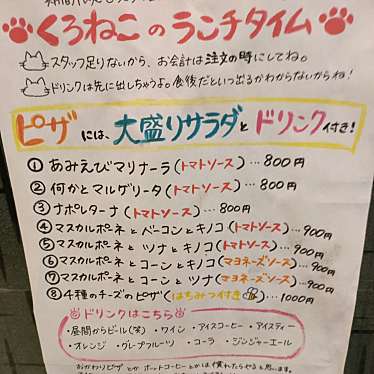 くろねこのランチタイム
スタッフ足りないから、お会計は注文の時にしてね。
ドリンクは先に出しちゃうよ。食後だといつ出るかわからないからね!
ピザには、大盛りサラダとドリンク付き!
①あみえびマリナーラ(トマトソース)…800円
②何かとマルゲリータ(トマトソース)…800円
③ナポレターナ(トマトソース)…800円
④マスカルポーネとベーコンとキノコ(トマトソース)…900円
⑤マスカルポーネとツナとキノコ(トマトソース)…900円
⑥マスカルポーネとコーンとキノコ(マヨネーズソース)…900円
⑦マスカルポーネとコーンとツナ(マヨネーズソース)…900円
⑧4種のチーズのピザ(はちみつ付き)…1000円
ドリンクはこちら
・昼間からビール(笑)・ワイン・アイスコーヒー・アイスティー
・オレンジ・グレープフルーツ・コーラ・ジンジャーエール
おかわりピザとかホットコーヒーとかは慣れたらやると思います。